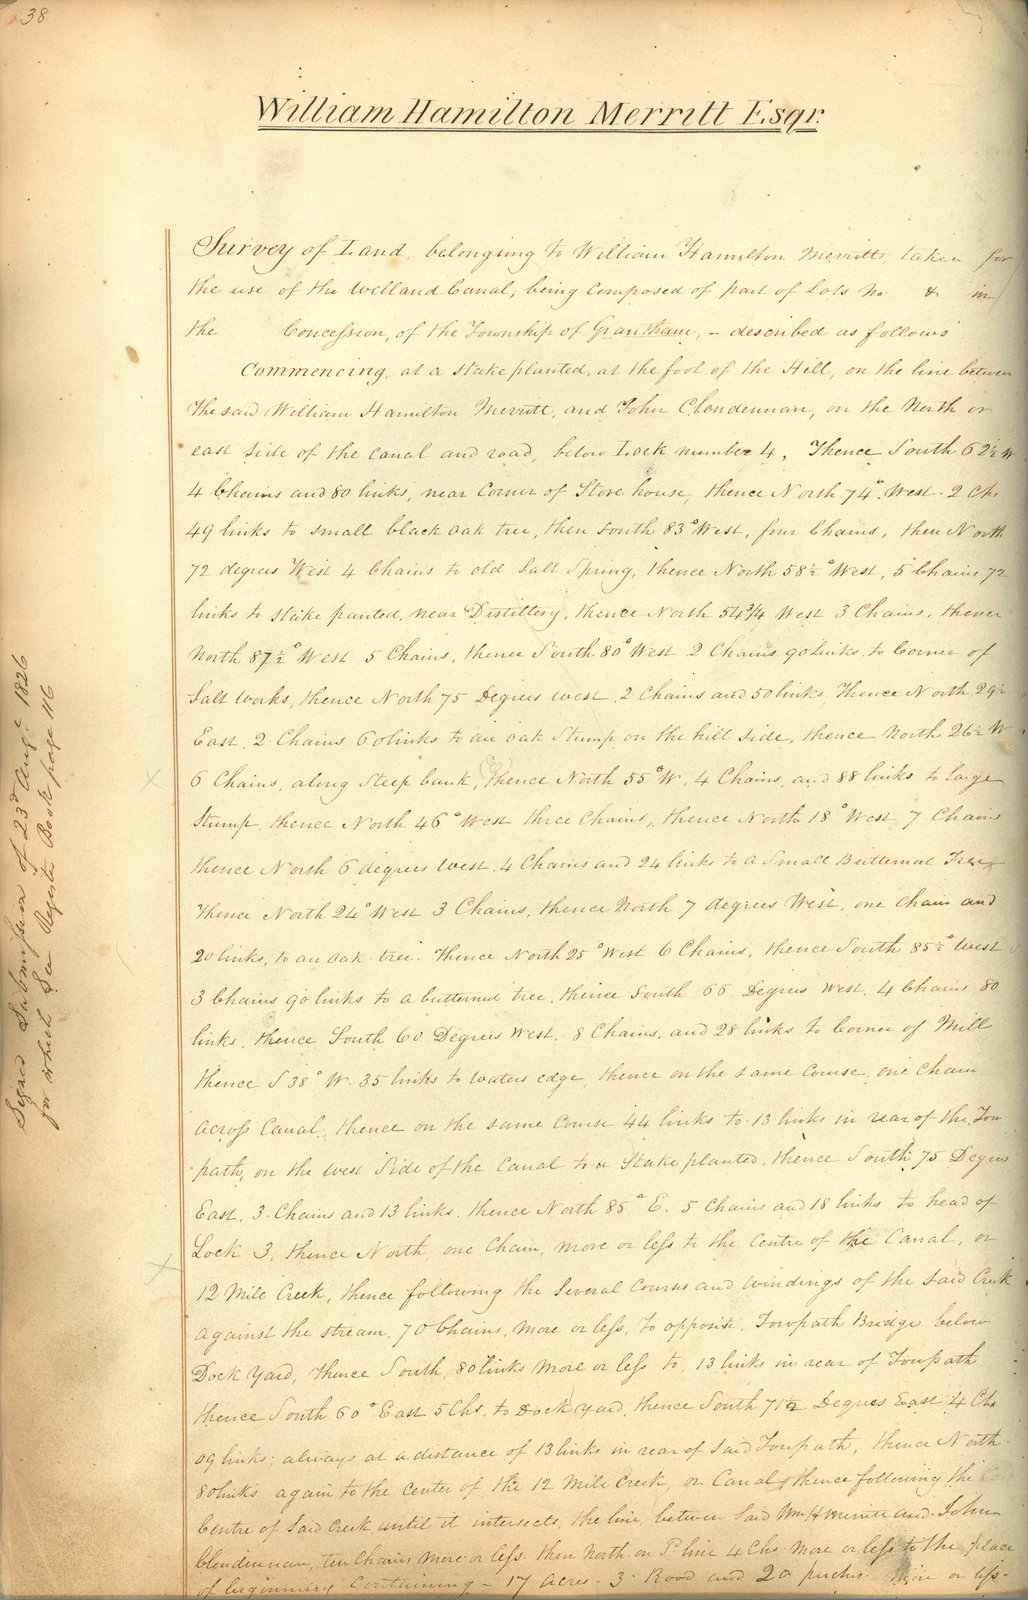 38
William Hamilton Merritt Esqr.
Survey of Land, belonging to William Hamilton Merritt, taken for
the use of the Welland Canal, being composed of part of Lots No. & in
the Concession, of the Township of Grantham, – described as follows
Commencing, at a stake planted, at the foot of the Hill, on the line between
the said William Hamilton Merritt, and John Clendennan, on the North or
east side of the canal and road, below Lock number 4, Thence South 62½ W
4 Chains and 80 links, near Corner of Store house, thence North 74° West. 2 Chs
49 links to small black oak tree, then South 83° West, four Chains, then North
72 degrees West 4 Chains to old Salt Spring, thence North 58½° West, 5 Chains 72
links to stake panted, near Distillery, thence North 54¾ West 3 Chains, thence
North 87½° West 5 Chains, thence South 80° West 2 Chains 90 links to Corner of
Salt works, thence North 75 Degrees west 2 Chains and 50 links Thence North 29½
East 2 Chains 60 links to an oak Stump on the hill side, thence North 26½ W
6 Chains, along steep bank, thence North 55° W. 4 Chains, and 88 links to large
Stump, thence North 46° West three Chains, thence North 18° West 7 Chains
thence North 6 degrees West 4 Chains and 24 links to a Small Butternut Tree
Thence North 24° West 3 Chains, thence North 7 degrees West, one chain and
20 links, to an oak tree. Thence North 25° West 6 Chains, thence South 85½° West
3 Chains 90 links to a butternut tree, thence South 66 Degrees West, 4 Chains 80
links, thence South 60 Degrees West. 8 Chains, and 28 links to Corner of Mill
thence S 38° W. 35 links to waters edge, thence on the same course, one chain
across Canal, thence on the same course 44 links to 13 links in rear of the Tow
path, on the west side of the Canal to a Stake planted, thence South 75 Degrees
East, 3 Chains and 13 links, thence North 85° E. 5 Chains and 18 links to head of
Lock 3, thence North, one Chain, more or less to the Centre of the Canal, or
12 Mile Creek, thence following the several courses and windings of the said Creek
against the stream, 70 Chains, more or less, to opposite, Towpath Bridge below
Dock Yard, thence South, 80 links more or less to, 13 links in rear of Towpath
thence South 60° East 5 Chs, to Dock Yard, thence South 71½ Degrees East 4 Chs
09 links, always at a distance of 13 links in rear of said Towpath, thence North
80 links again to the center of the 12 Mile Creek, or Canal, thence following the
Centre of said Creek until it intersects, the line, between said Wm H Merritt and John
Clendennan, ten Chains, more or less. then North on Sd line 4 Chs. more or less to the place
of beginning Containing – 17 Acres – 3 Rood and 20 perches. More or less.
Signed Submission of 23d Augt 1826
for which see Registr Book page 116